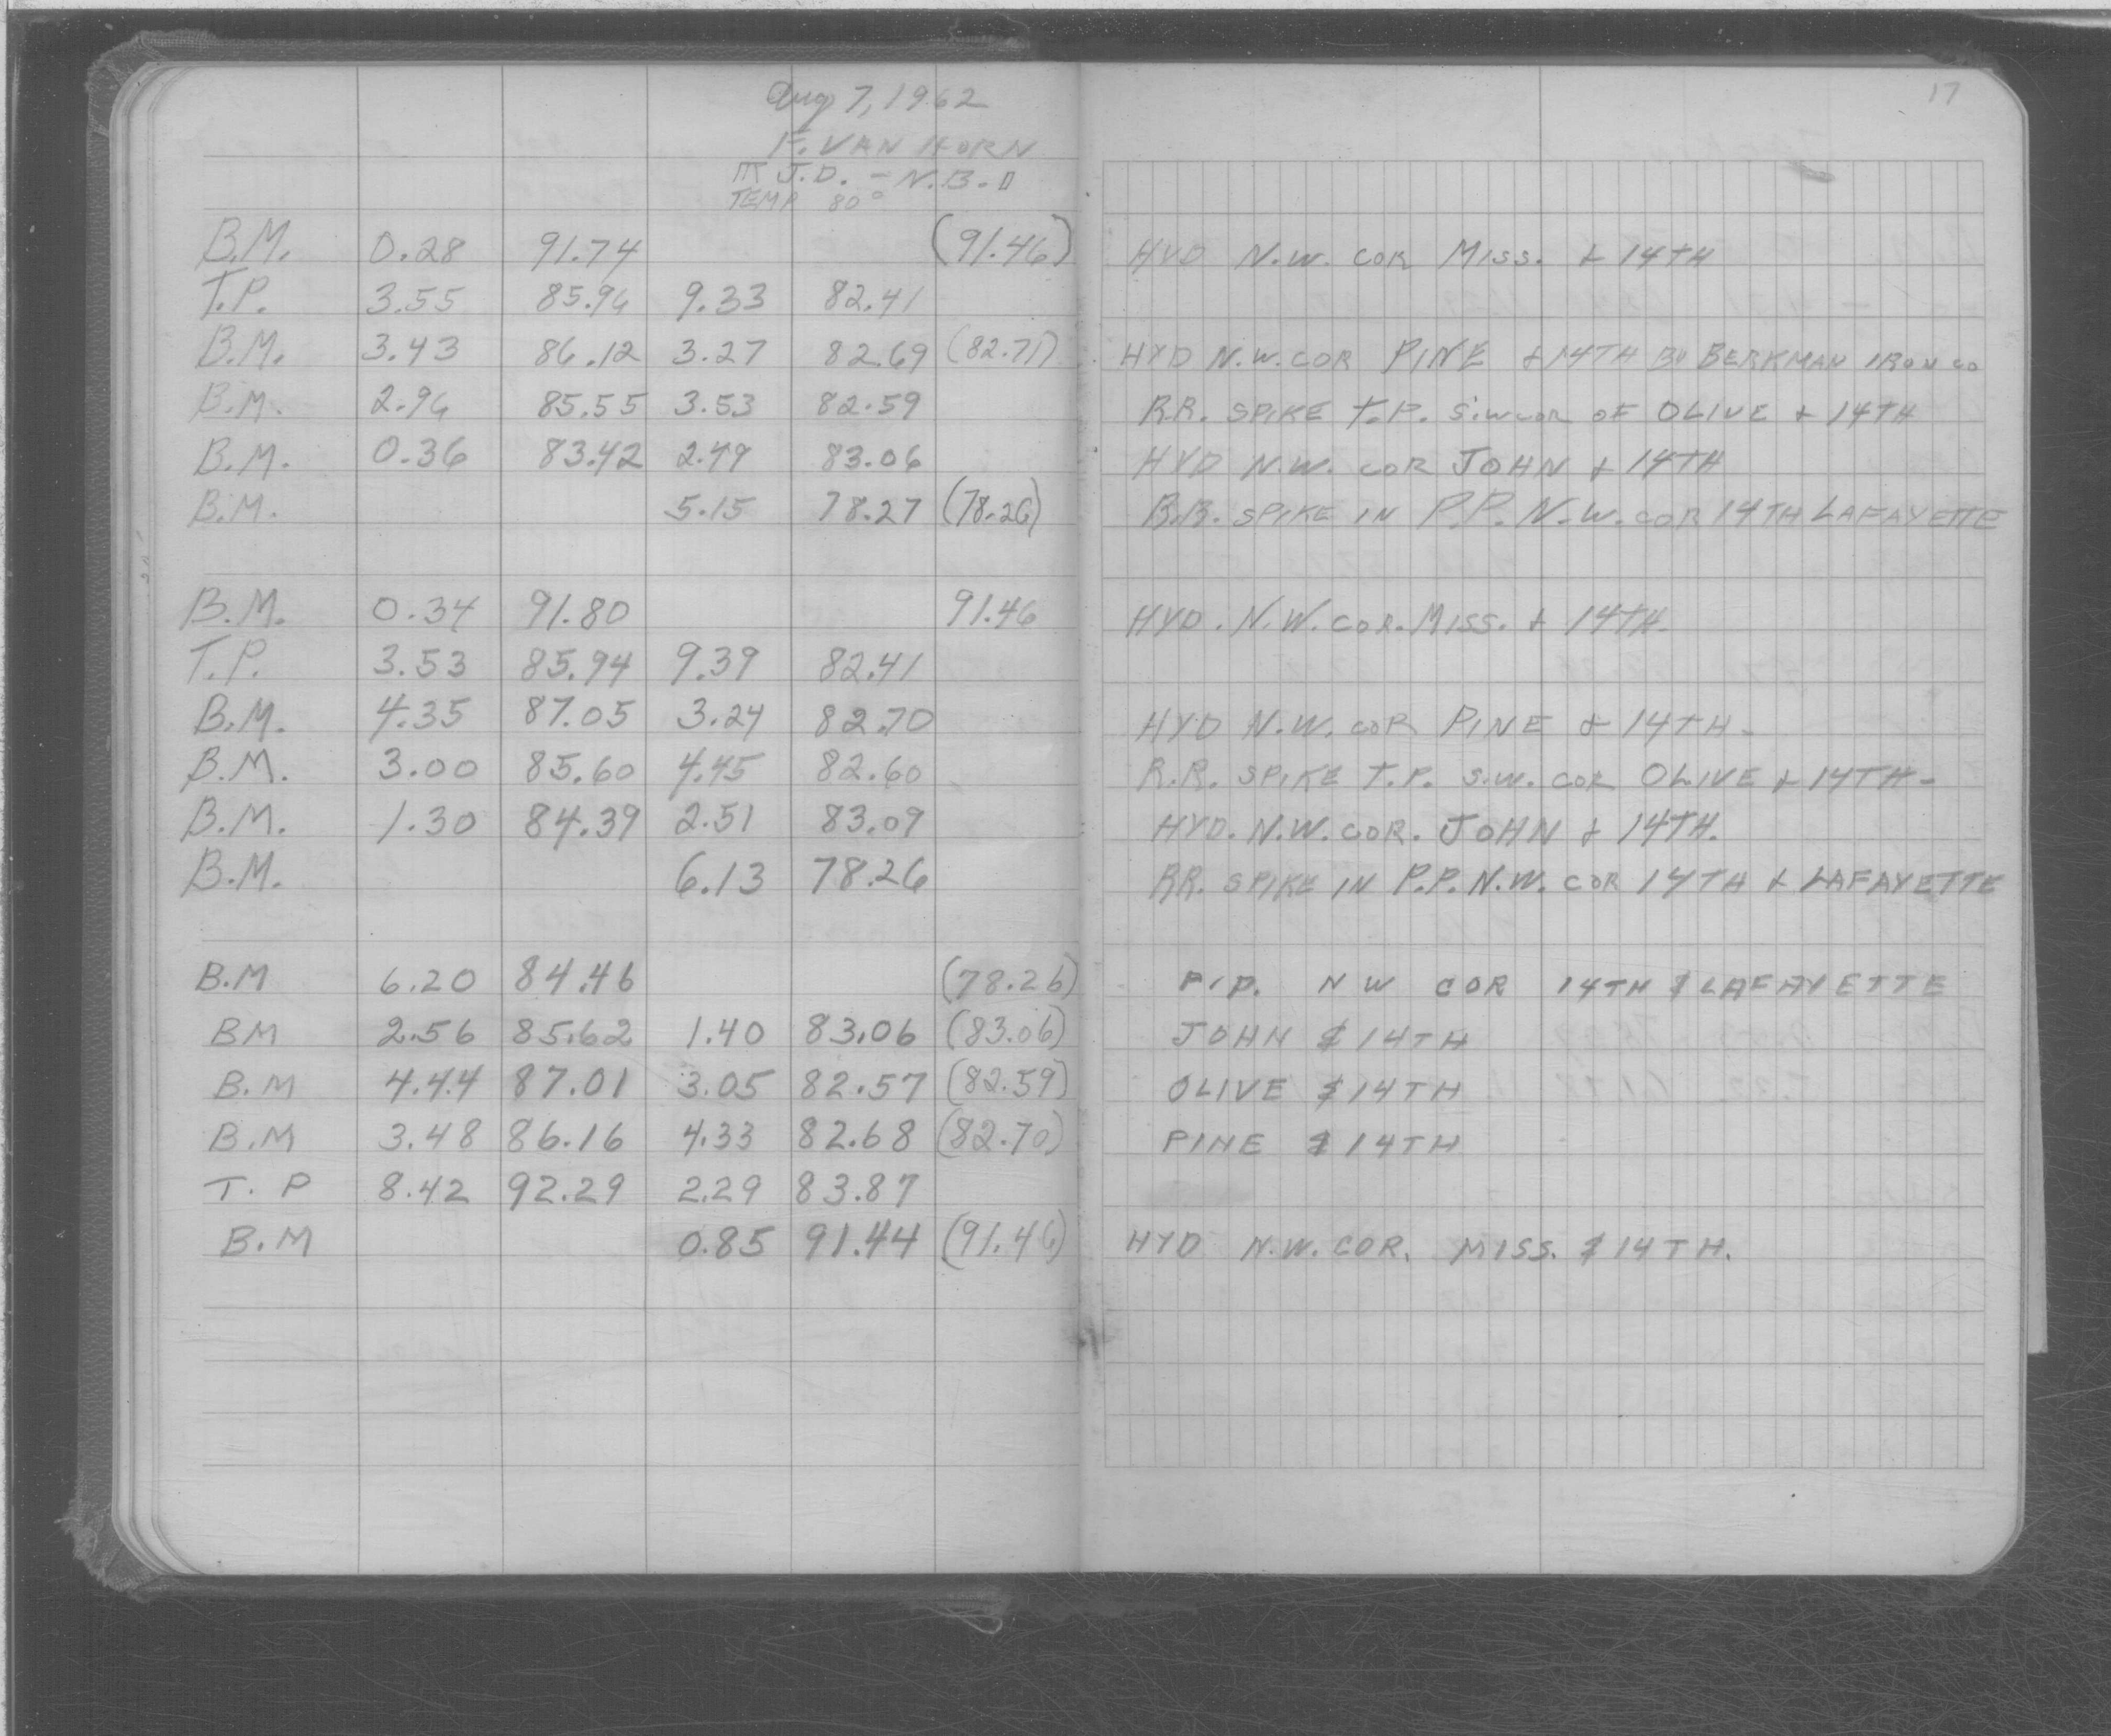 17
Aug 7, 1962
F. VAN HORN
J.D. - N.B.D
TEMP 80°
B.M. 0.28 91.74 (91.46) HYD N.W. COR MISS. & 14TH
T.P. 3.55 85.96 9.33 82.41
B.M. 3.43 86.12 3.27 82.69 (82.71) HYD N.W. COR PINE & 14TH BERKMAN IRON CO
B.M. 2.96 85.55 3.53 82.59 R.R. SPIKE T.P. S.W COR OF OLIVE & 14TH
B.M. 0.36 83.42 2.49 83.06 HYD N.W. COR JOHN & 14TH
B.M. 5.15 78.27 (78.26) R.R. SPIKE IN P.P. N.W. COR 14TH LAFAYETTE
B.M. 0.34 91.80 91.46 HYD. N.W. COR. MISS. & 14TH.
T.P. 3.53 85.94 9.39 82.41
B.M. 4.35 87.05 3.24 82.70 HYD N.W. COR PINE & 14TH-
B.M. 3.00 85.60 4.45 82.60 R.R. SPIKE T.P. S.W. COR OLIVE & 14TH-
B.M. 1.30 84.39 2.51 83.09 HYD. N.W. COR. JOHN & 14TH.
B.M. 6.13 78.26 RR. SPIKE IN P.P. N.W. COR 14TH & LAFAYETTE
B.M 6.20 84.46 (78.26) P.P. N W COR 14TH & LAFAYETTE
BM 2.56 85.62 1.40 83.06 (83.06) JOHN & 14TH
B.M 4.44 87.01 3.05 82.57 (82.59) OLIVE & 14TH
B.M 3.48 86.16 4.33 82.68 (82.70) PINE & 14TH
T.P 8.42 92.29 2.29 83.87
B.M 0.85 91.44 (91.46) HYD N.W. COR. MISS. & 14TH.